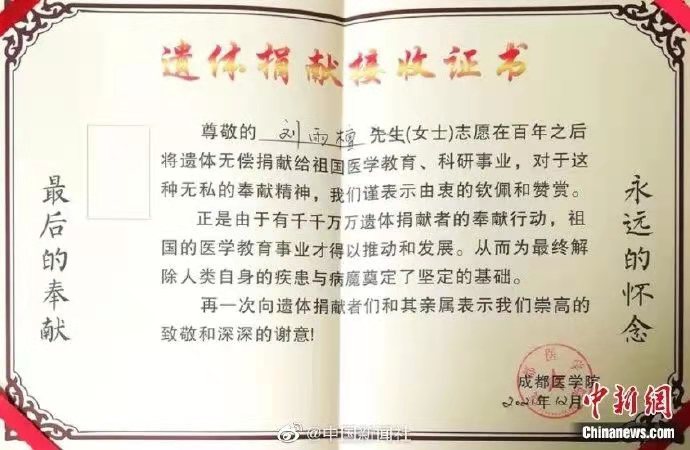 遗体捐献接收证书
尊敬的 刘雨檀 先生(女士)志愿在百年之后
将遗体无偿捐献给祖国医学教育、科研事业，对于这
种无私的奉献精神，我们谨表示由衷的钦佩和赞赏。
正是由于有千千万万遗体捐献者的奉献行动，祖
国的医学教育事业才得以推动和发展。从而为最终解
除人类自身的疾患与病魔奠定了坚定的基础。
再一次向遗体捐献者们和其亲属表示我们崇高的
致敬和深深的谢意!
最后的奉献
永远的怀念
成都医学院
2021年12月
@中国新闻社
中新网
Chinanews.com